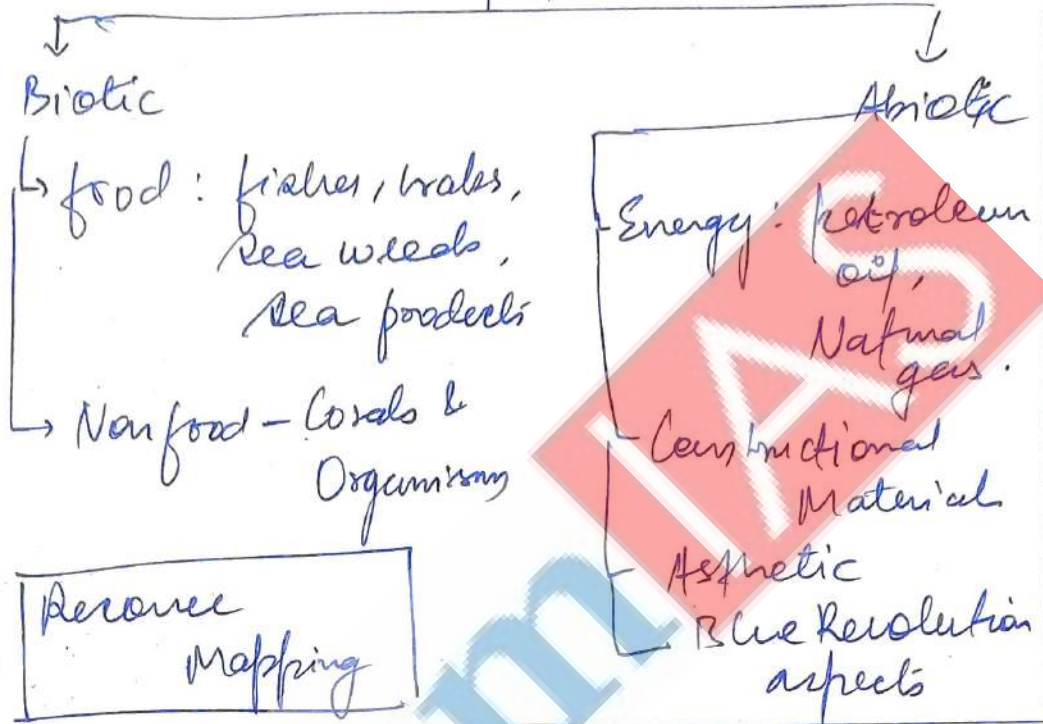 Biotic
↳ food : fishes, crabs,
sea weeds,
sea products
→ Non food - Corals &
Organisms
Resource
Mapping
Abiotic
- Energy : petroleum
oil,
Natural
gas.
- Constructional
Materials
- Asthetic
- Blue Revolution
aspects
IAS
m